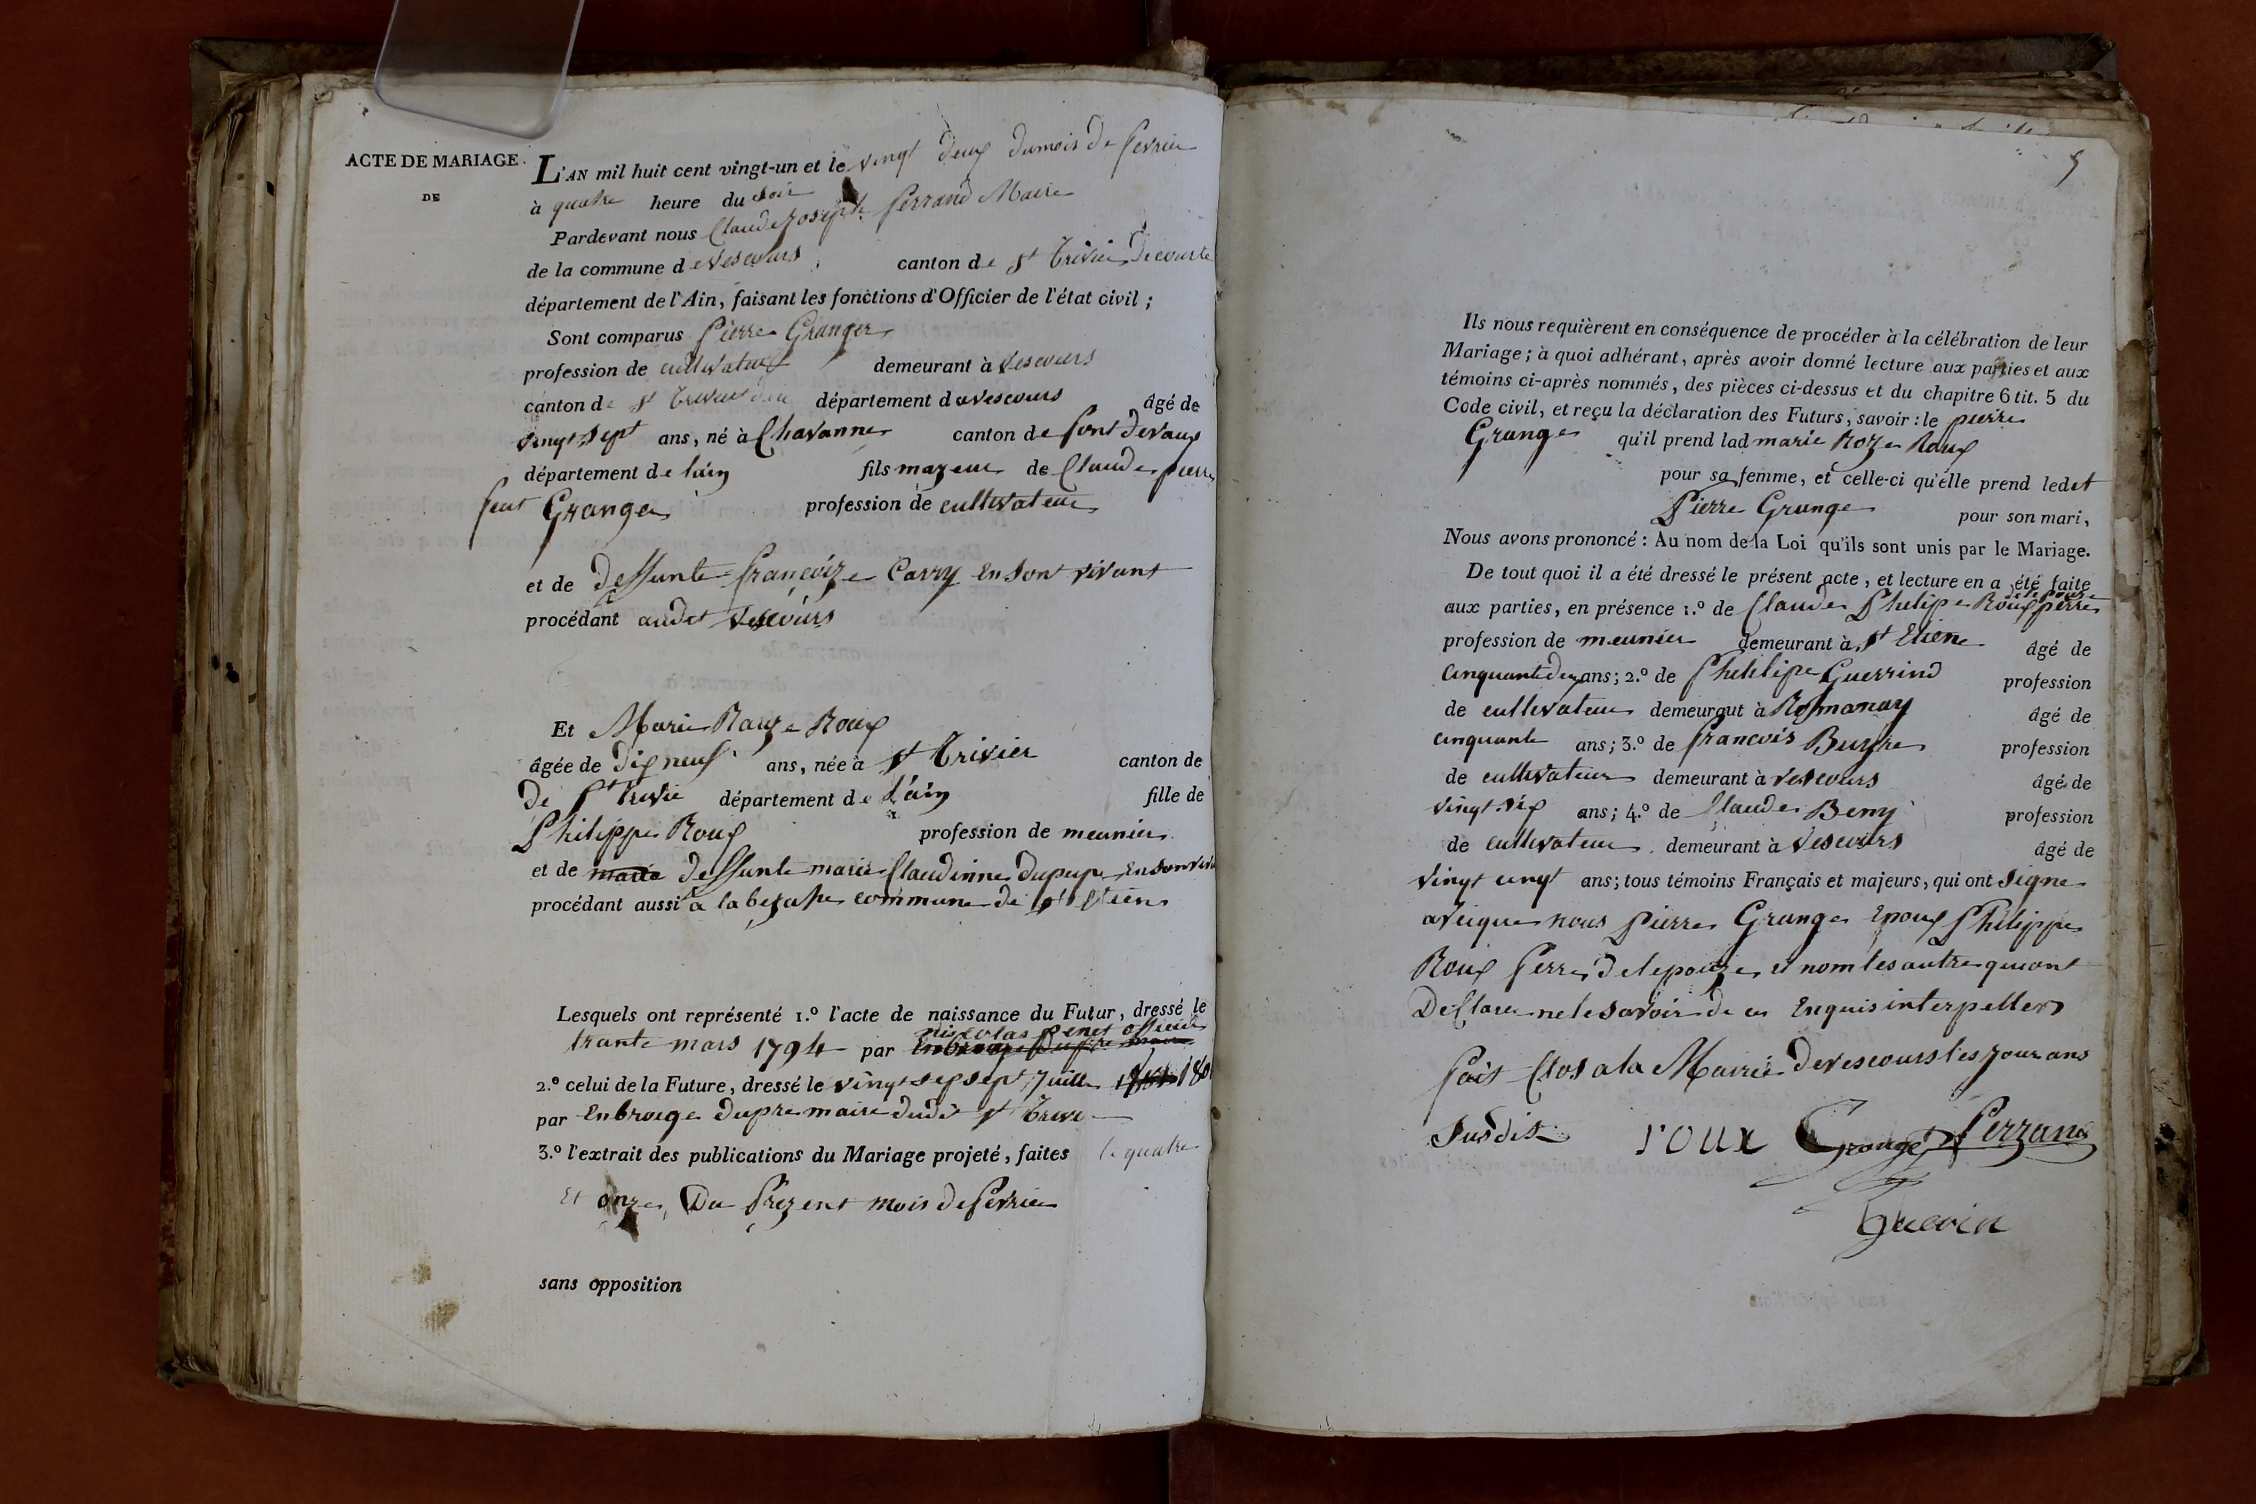 ACTE DE MARIAGE
DE
L'AN mil huit cent vingt-un et le vingt deux du mois de fevrier
à quatre heure du soir
Pardevant nous Claude Joseph ferrand Maire
de la commune de Vescours canton de St Trivier de courte
département de l'Ain, faisant les fonctions d'Officier de l'état civil ;
Sont comparus Pierre Granger
profession de cultivateur demeurant à Vescours
canton de St département de Vescours âgé de
vingt sept ans, né à Chavanne canton de Pont devaux
département de lain fils mazeur de Claude pierre
feut Granger profession de cultivateur
et de deffunte francoize Carry en son vivant
procédant audit Vescours
Et Marie Rauze Roux
âgée de dix neuf ans, née à St Trivier canton de
de St Trivie département de l'ain fille de
Philippe Roux profession de meunier
et de deffunte marie Claudinne dupupe en son
procédant aussi a la commune de St
Lesquels ont représenté 1.º l'acte de naissance du Futur, dressé le
trante mars 1794 par nicolas
2.º celui de la Future, dressé le vingt sept Juillet
par Enbroige dupre maire dudit St
3.º l'extrait des publications du Mariage projeté, faites le quatre
Et onze Du Prezent mois de fevrier
sans opposition
5
Ils nous requièrent en conséquence de procéder à la célébration de leur
Mariage ; à quoi adhérant, après avoir donné lecture aux parties et aux
témoins ci-après nommés, des pièces ci-dessus et du chapitre 6 tit. 5 du
Code civil, et reçu la déclaration des Futurs, savoir : le pierre
Grange qu'il prend lad marie Roze Roux
pour sa femme, et celle-ci qu'elle prend ledit
Pierre Grange pour son mari,
Nous avons prononcé : Au nom de la Loi qu'ils sont unis par le Mariage.
De tout quoi il a été dressé le présent acte, et lecture en a été faite
aux parties, en présence 1.º de Claude Philipe Roux perre
profession de meunier demeurant à St Etiene âgé de
cinquante deux ans ; 2.º de Philipe Guerrind profession
de cultivateur demeurant à Romanay âgé de
cinquante ans ; 3.º de francois profession
de cultivateur demeurant à Vescours âgé de
vingt six ans ; 4.º de Claude Beny profession
de cultivateur demeurant à Vescours âgé de
vingt cinqt ans ; tous témoins Français et majeurs, qui ont signe
aveique nous Pierre Grange Epoux Philippe
Roux perre de lepouze et nom les autre qui ont
Declarer ne le savoir de ce Enquis interpeller
fait Clos a la Mairie de vescours les Jour ans
Susdit roux Grange ferrand
Guerin